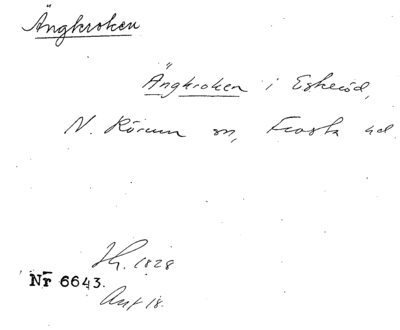 Ängkroken
Ängkroken i Eskeröd,
N. Rörum sn, Frosta hd.
Sk. 1828
Nr 6643.
Ant 18.